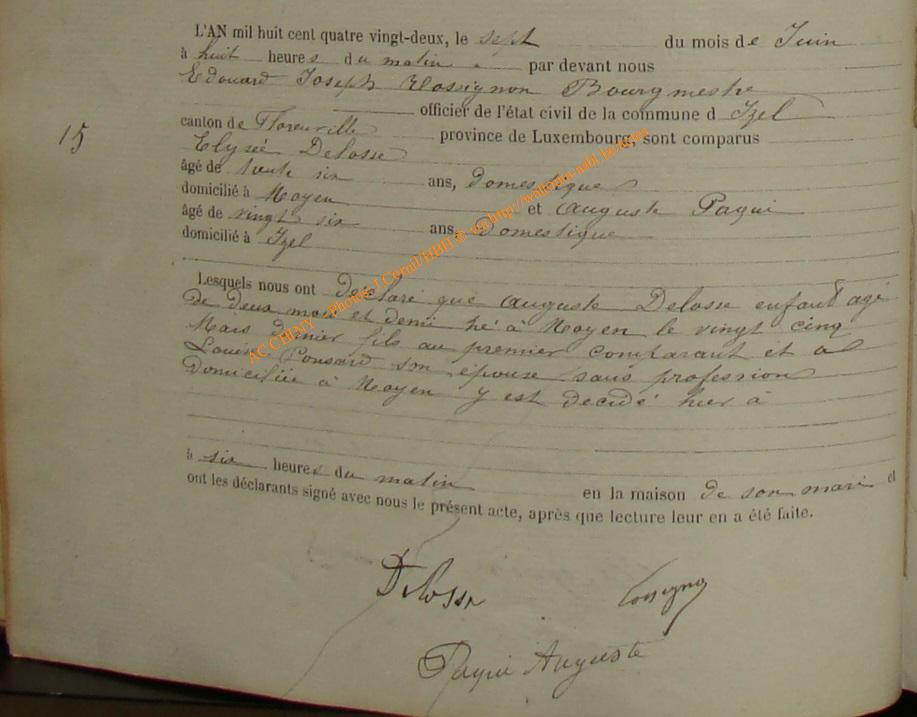 L'AN mil huit cent quatre vingt-deux, le sept du mois de Juin
à huit heures du matin par devant nous
Edouard Joseph Rossignon Bourgmestre
officier de l'état civil de la commune d Izel
15
canton de Florenville province de Luxembourg, sont comparus
Elysée Delosse
âgé de trente six ans, domestique
domicilié à Moyen et Auguste Paqui
âgé de vingt six ans, Domestique
domicilié à Izel
Lesquels nous ont déclaré que Auguste Delosse enfant agé
de deux mois et demi né à Moyen le vingt cinq
Mars dernier fils au premier comparant et a
Louise Ponsard son épouse sans profession
Domiciliée à Moyen y est décidé hier à
à six heures du matin en la maison de son mari et
ont les déclarants signé avec nous le présent acte, après que lecture leur en a été faite.
Delosse
Paqui Auguste
AC CHINY - Photos J.Cornil HBH &